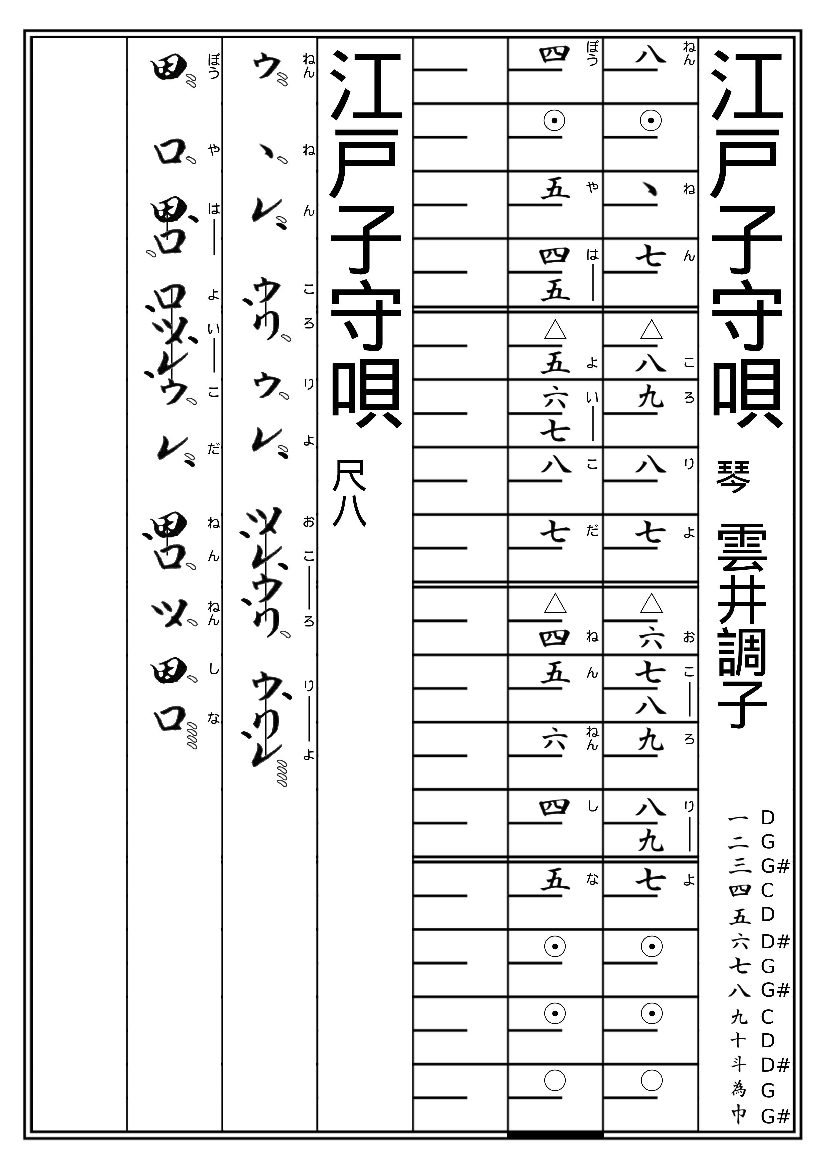 江戸子守唄 琴 雲井調子
一 D
二 G
三 G#
四 C
五 D
六 D#
七 G
八 G#
九 C
十 D
斗 D#
為 G
巾 G#
八 ⊙ ヽ 七 △ 八 九 八 七 △ 六 七 八 九 八 九 七 ⊙ ⊙ ○
ねん ね ん こ ろ り よ お こ― ろ り― よ
四 ⊙ 五 四 五 △ 五 六 七 八 七 △ 四 五 六 四 五 ⊙ ⊙ ○
ぼう や は― よ い― こ だ ね ん ねん し な
江戸子守唄 尺八
ねん ね ん こ ろ り よ お こ― ろ り― よ
ウ ヽ レ ウ リ ウ レ ツ レ ウ リ ウ リ レ
ぼう や は― よ い― こ だ ね ん ねん し な
ロ ロ ロ ツ レ ウ レ ロ ツ ロ